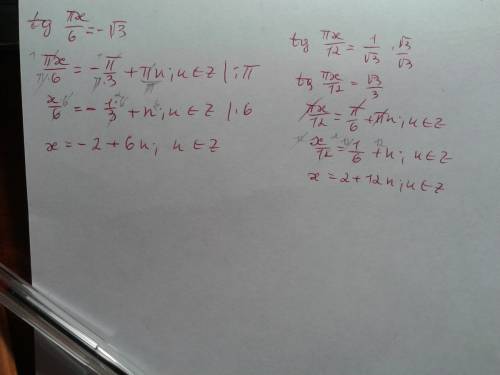 tg πx/6 = -√3
πx/6 = -π/3 + πn; n∈Z |:π
x/6 = -1/3 + n; n∈Z |·6
x = -2 + 6n; n∈Z
tg πx/12 = 1/√3 · √3/√3
tg πx/12 = √3/3
πx/12 = π/6 + πn; n∈Z
x/12 = 1/6 + n; n∈Z
x = 2 + 12n; n∈Z